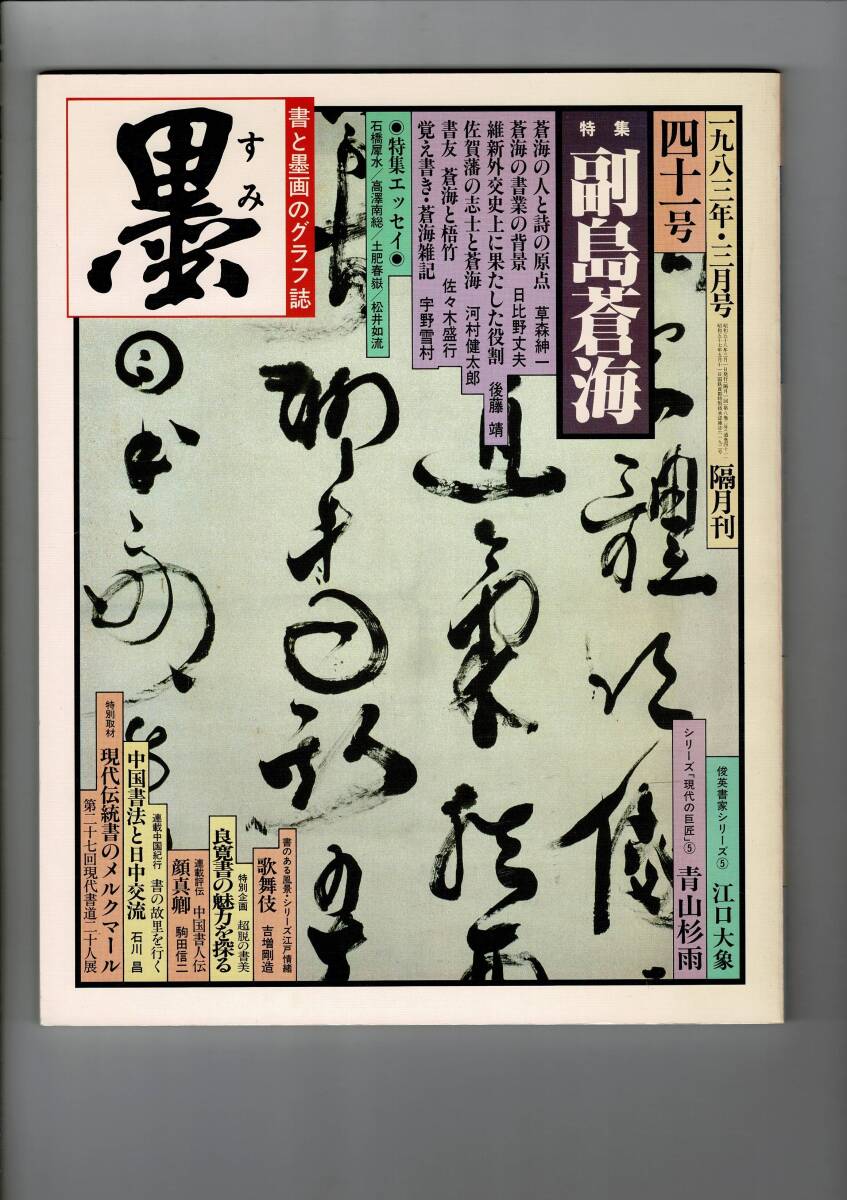 一九八三年・三月号
隔月刊
四十一号
特集
副島蒼海
蒼海の人と詩の原点 草森紳一
蒼海の書業の背景 日比野丈夫
維新外交史上に果たした役割 後藤 靖
佐賀藩の志士と蒼海 河村健太郎
書友 蒼海と梧竹 佐々木盛行
覚え書き・蒼海雑記 宇野雪村
◎特集エッセイ◎
石橋犀水/高澤南総/土肥春嶽/松井如流
書と墨画のグラフ誌
すみ
墨
俊英書家シリーズ⑤ 江口大象
シリーズ「現代の巨匠」⑤ 青山杉雨
書のある風景・シリーズ江戸情緒
歌舞伎 吉増剛造
特別企画 超脱の書美
良寛書の魅力を探る
連載評伝 中国書人伝
顔真卿 駒田信二
連載中国紀行 書の故里を行く
中国書法と日中交流 石川 昌
特別取材 現代伝統書のメルクマール
第二十七回現代書道二十人展